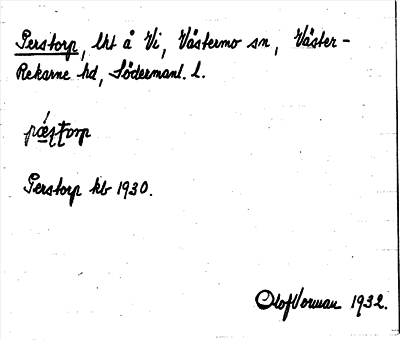 Perstorp, lht å Vi, Västermo sn, Väster-
Rekarne hd, Södermanl. l.
Perstorp kb 1930.
Olof Vorman 1932.